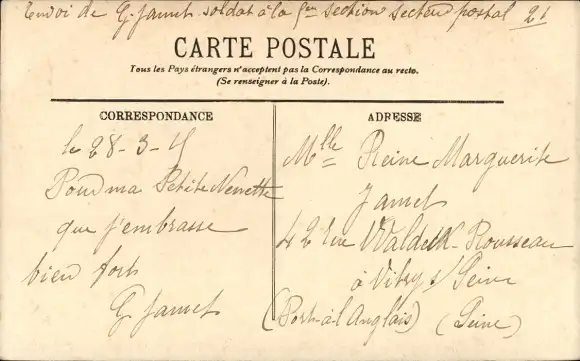 Envoi de G. Jamet soldat à la section secteur postal 21
CARTE POSTALE
Tous les Pays étrangers n'acceptent pas la Correspondance au recto.
(Se renseigner à la Poste).
CORRESPONDANCE
le 28-3-15
Pour ma Petite Nenette
que j'embrasse
bien fort
G Jamet
ADRESSE
Mlle Reine Marguerite
Jamet
42 rue Waldeck-Rousseau
à Vitry s/ Seine
(Port-à-l'Anglais) (Seine)